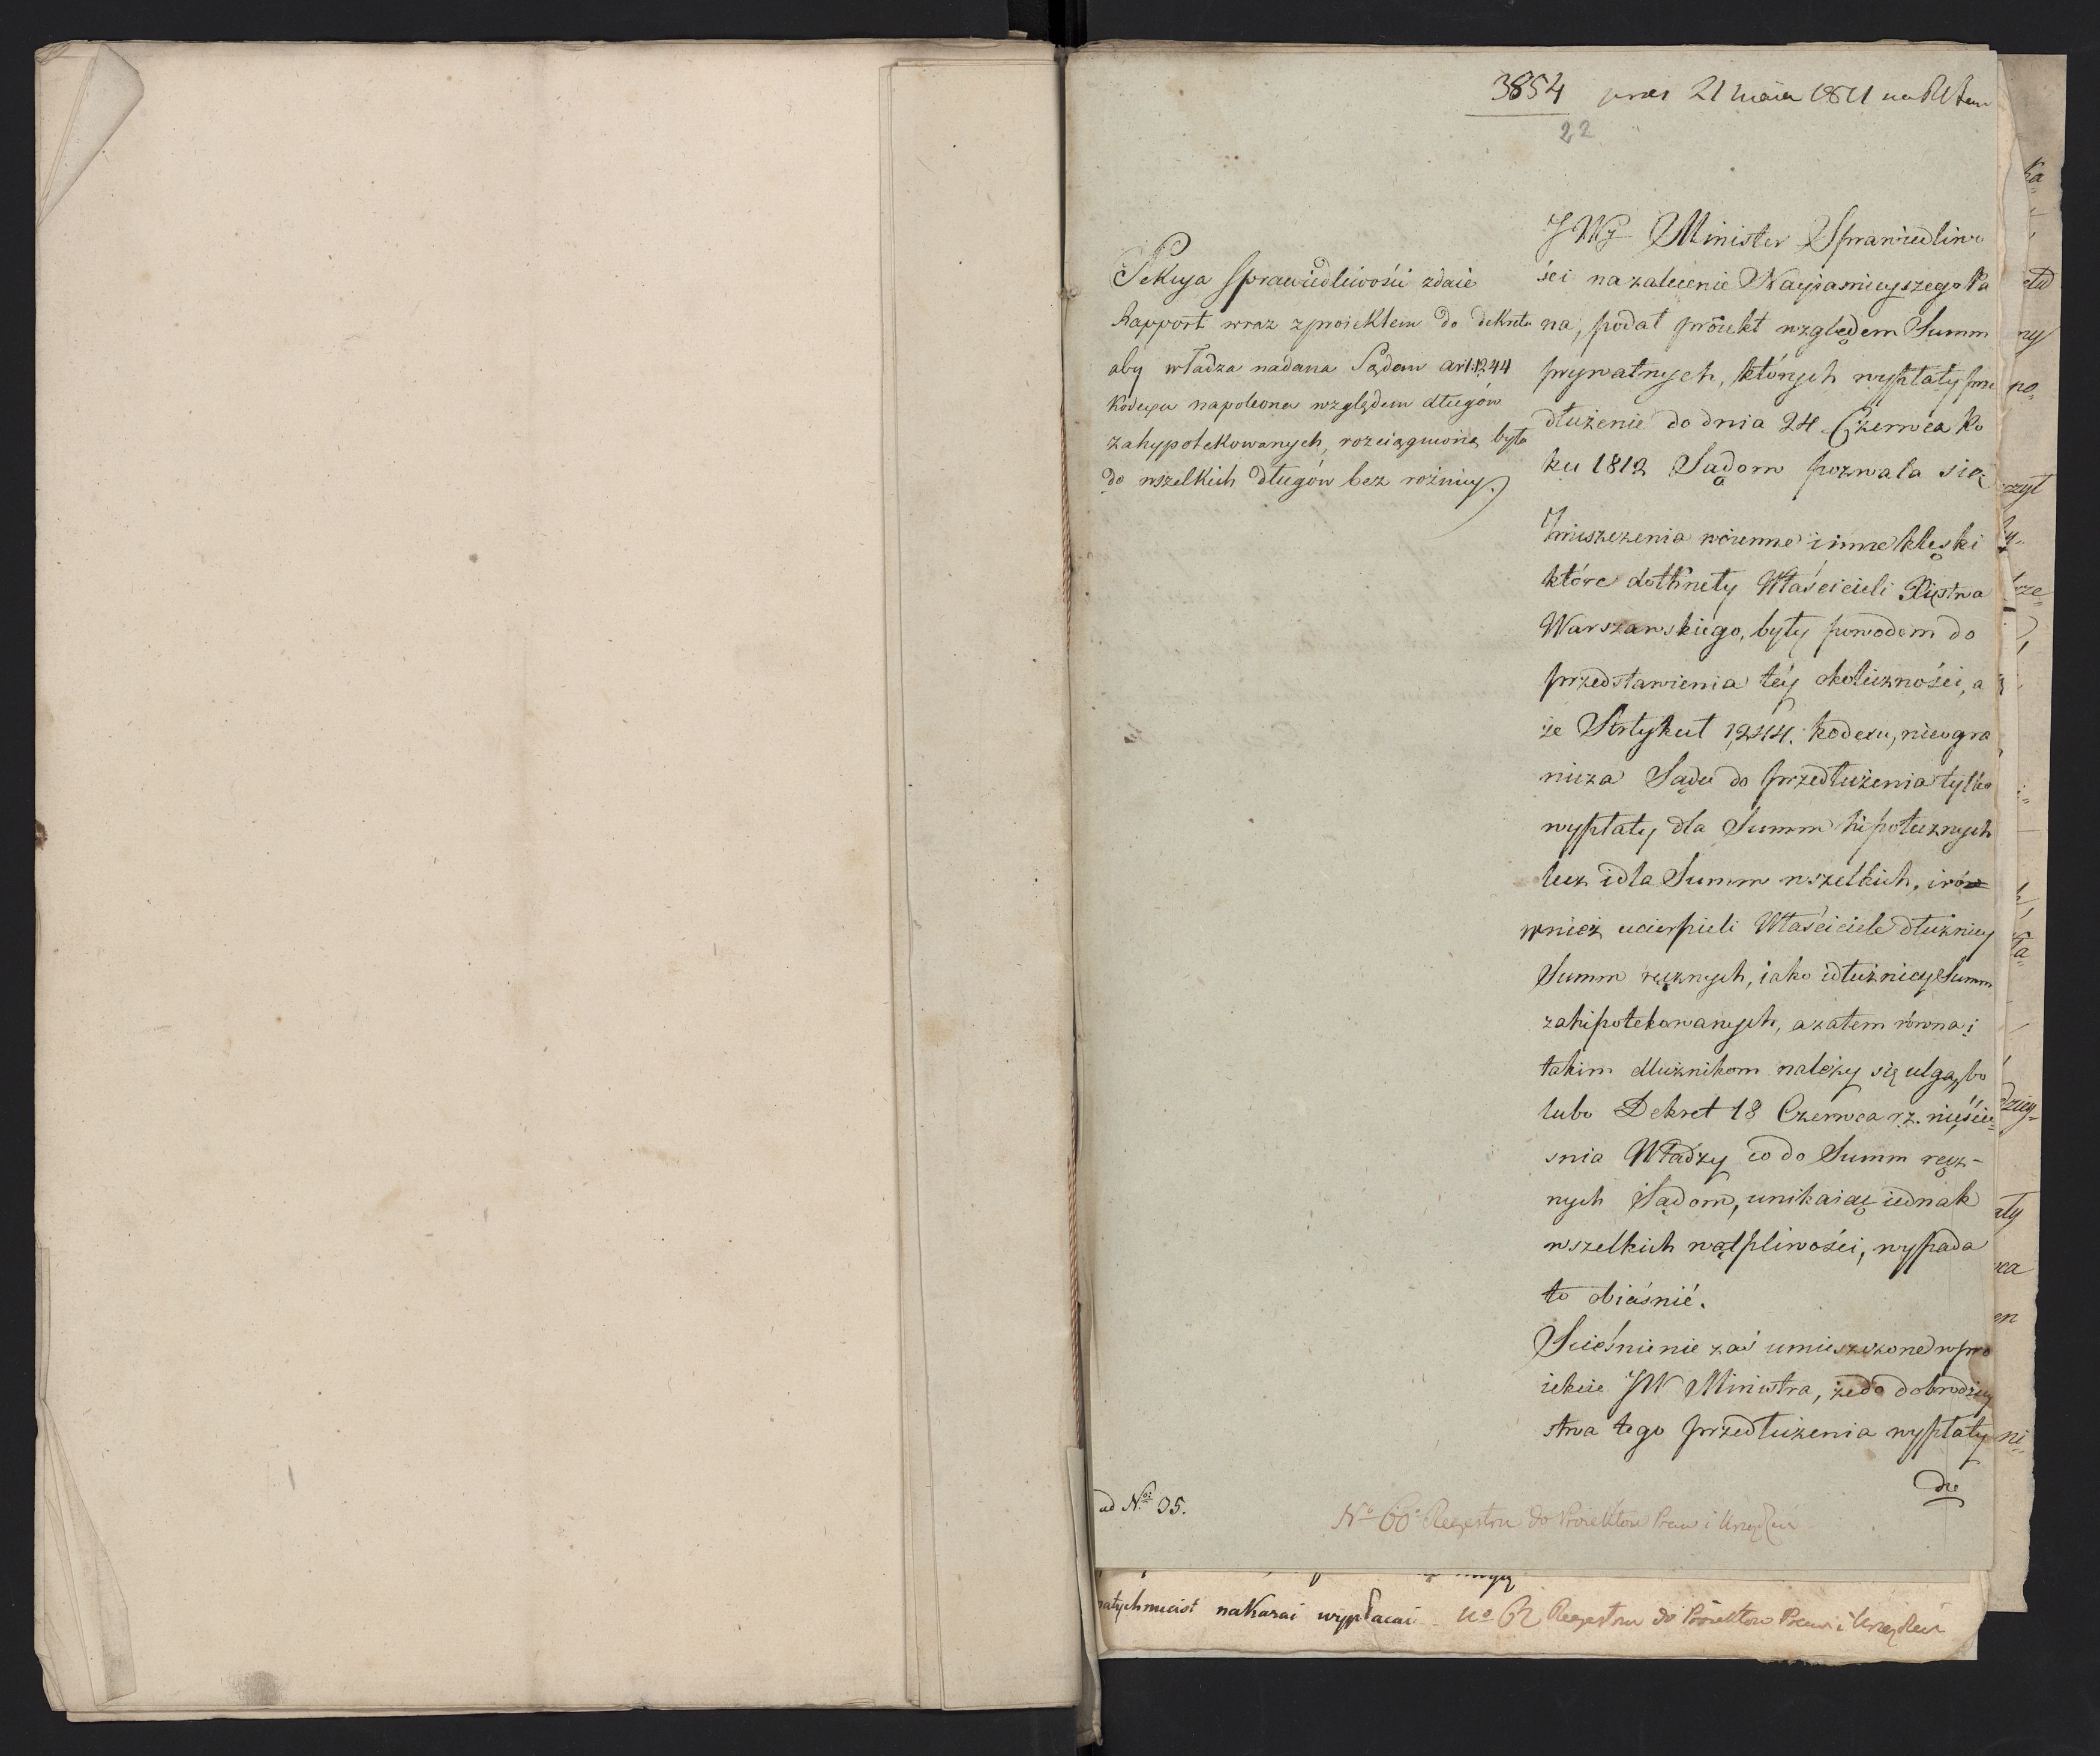 3854 21 maia 1811
22
Sekcya Sprawiedliwości zdaie
Rapport wraz z proiektem do dekretu
aby władza nadana Sądom art: 1244
Kodexu napoleona względem długów
zahypotekowanych, rozciągniona była
do wszelkich długów bez rożnicy.
JW Minister Sprawiedliwo
ści na zalecenie Nayiasnieyszego Pa
na, podał proiekt względem Summ
prywatnych, których wypłaty prze
dłużenie do dnia 24 Czerwca Ro
ku 1812 Sądom pozwala się
Zniszczenia woienne i inne klęski
które dotknęły Właścicieli Xięstwa
Warszawskiego, były powodem do
przedstawienia téy okoliczności, a
że Artykuł 1244. kodexu, nieogra
nicza Sądu do przedłużenia tylko
wypłaty dla Summ hipotecznych
lecz i dla Summ wszelkich, i rów
wnież ucierpieli Właściciele dłużnicy
Summ ręcznych, iako i dłużnicy Summ
zahipotekowanych, a zatem równa i
takim dłużnikom należy się ulga, bo
lubo Dekret 18 Czerwca r.z. nieście=
snia Władzy co do Summ ręcz-
nych Sądom, unikaiąc iednak
wszelkich wątpliwości, wypada
to obiaśnić.
Scieśnienie zaś umieszczone w pro
iekcie JW Ministra, że do dobrodziey
stwa tego przedłużenia wypłaty
ad N. 35.
No 60 Regestru do Proiektow Praw i Urządzeń
natychmiast nakazał wypłacać No 62 Regestru do Proiektow Praw i Urządzeń